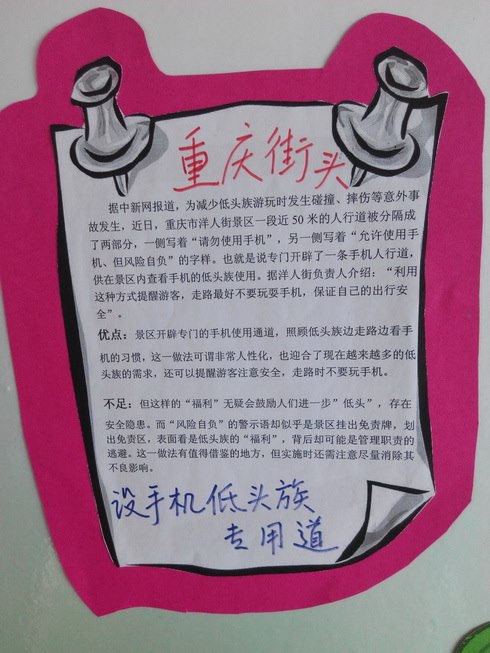 重庆街头
据中新网报道，为减少低头族游玩时发生碰撞、摔伤等意外事
故发生，近日，重庆市洋人街景区一段近 50 米的人行道被分隔成
了两部分，一侧写着“请勿使用手机”，另一侧写着“允许使用手
机、但风险自负”的字样。也就是说专门开辟了一条手机人行道，
供在景区内查看手机的低头族使用。据洋人街负责人介绍：“利用
这种方式提醒游客，走路最好不要玩耍手机，保证自己的出行安
全”。
优点：景区开辟专门的手机使用通道，照顾低头族边走路边看手
机的习惯，这一做法可谓非常人性化，也迎合了现在越来越多的低
头族的需求，还可以提醒游客注意安全，走路时不要玩手机。
不足：但这样的“福利”无疑会鼓励人们进一步“低头”，存在
安全隐患。而“风险自负”的警示语却似乎是景区挂出免责牌，划
出免责区，表面看是低头族的“福利”，背后却可能是管理职责的
逃避。这一做法有值得借鉴的地方，但实施时还需注意尽量消除其
不良影响。
设手机低头族
专用道